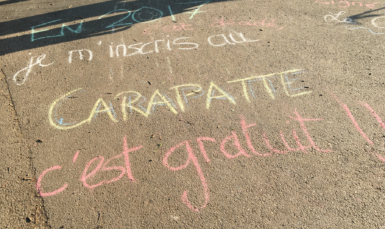 EN 2017
je m'inscris au
CARAPATTE
c'est gratuit !!